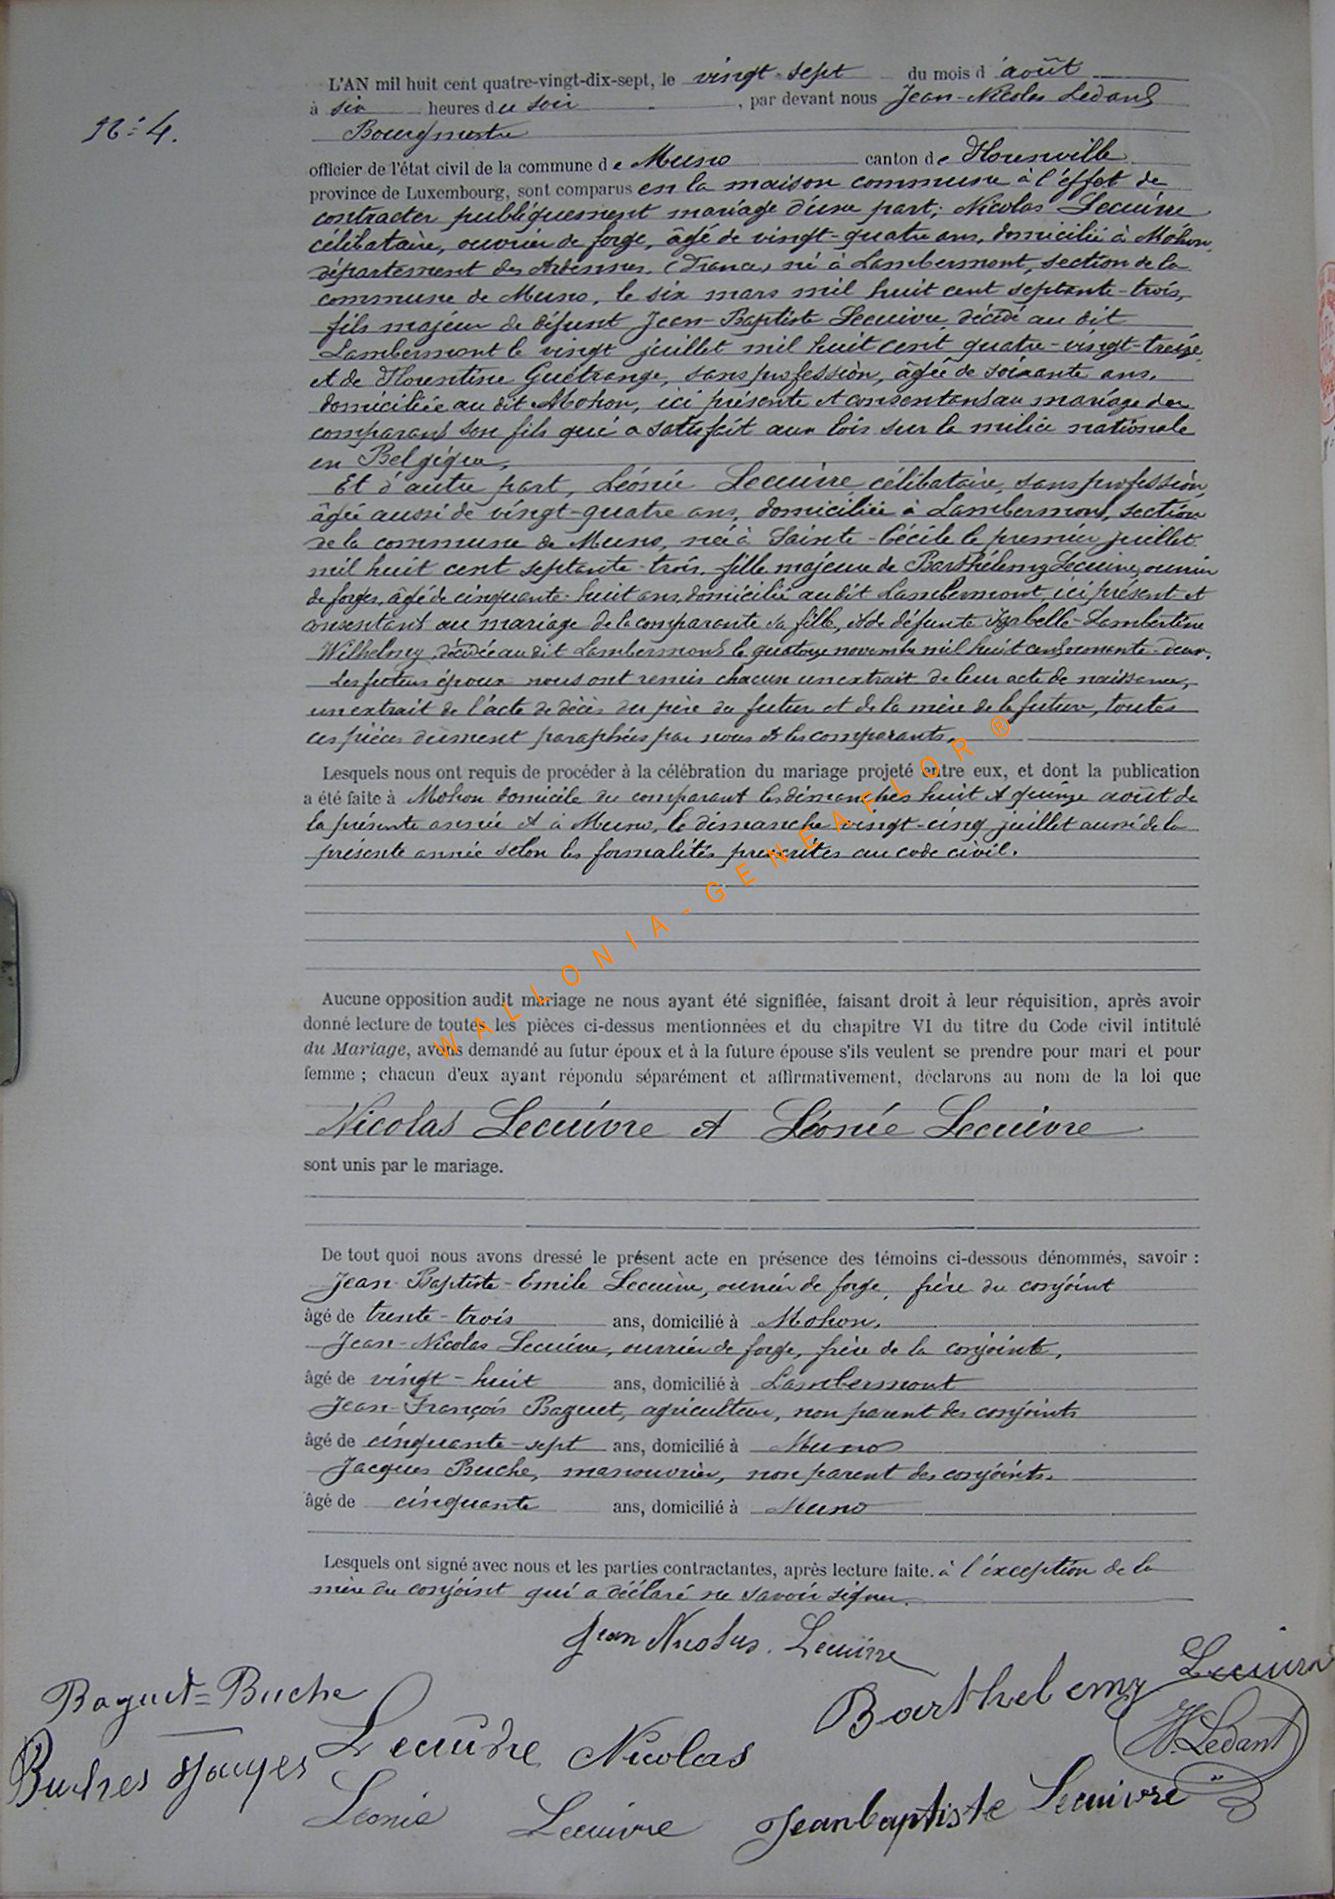 L'AN mil huit cent quatre-vingt-dix-sept, le vingt-sept du mois d'août
à six heures du soir, par devant nous Jean-Nicolas Ledant
Nº 4.
Bourgmestre
officier de l'état civil de la commune de Muno canton de Florenville
province de Luxembourg, sont comparus en la maison commune à l'effet de
contracter publiquement mariage d'une part, Nicolas Lecuivre
célibataire, ouvrier de forge, âgé de vingt-quatre ans, domicilié à Mohon,
département des Ardennes, (France) né à Lambermont, section de la
commune de Muno, le six mars mil huit cent septante-trois,
fils majeur de défunt Jean-Baptiste Lecuivre, décédé au dit
Lambermont le vingt juillet mil huit cent quatre-vingt-treize,
et de Florentine Guétrange, sans profession, âgée de soixante ans,
domiciliée au dit Mohon, ici présente et consentant au mariage du
comparant son fils qui a satisfait aux lois sur la milice nationale
en Belgique,
Et d'autre part, Léonie Lecuivre, célibataire, sans profession,
âgée aussi de vingt-quatre ans, domiciliée à Lambermont, section
de la commune de Muno, née à Sainte-Cécile le premier juillet
mil huit cent septante-trois, fille majeure de Barthélemy Lecuivre, ouvrier
de forges, âgé de cinquante-huit ans, domicilié au dit Lambermont, ici présent et
consentant au mariage de la comparante sa fille, et de défunte Isabelle-Lambertine
décédée au dit Lambermont le quatorze novembre mil huit cent
Les futurs époux nous ont remis chacun un extrait de leur acte de naissance,
un extrait de l'acte de décès du père du futur et de la mère de la future, toutes
ces pièces dûment paraphées par nous et les comparants.
Lesquels nous ont requis de procéder à la célébration du mariage projeté entre eux, et dont la publication
a été faite à Mohon domicile du comparant les dimanches huit et quinze août de
la présente année et à Muno, le dimanche vingt-cinq juillet aussi de la
présente année selon les formalités prescrites au code civil.
WALLONIA-GENEAFLOR ®
Aucune opposition audit mariage ne nous ayant été signifiée, faisant droit à leur réquisition, après avoir
donné lecture de toutes les pièces ci-dessus mentionnées et du chapitre VI du titre du Code civil intitulé
du Mariage, avons demandé au futur époux et à la future épouse s'ils veulent se prendre pour mari et pour
femme ; chacun d'eux ayant répondu séparément et affirmativement, déclarons au nom de la loi que
Nicolas Lecuivre et Léonie Lecuivre
sont unis par le mariage.
De tout quoi nous avons dressé le présent acte en présence des témoins ci-dessous dénommés, savoir :
Jean-Baptiste-Emile Lecuivre, ouvrier de forge, frère du conjoint
âgé de trente-trois ans, domicilié à Mohon,
Jean-Nicolas Lecuivre, ouvrier de forge, frère de la conjointe,
âgé de vingt-huit ans, domicilié à Lambermont
Jean-François Baguet, agriculteur, non parent des conjoints
âgé de cinquante-sept ans, domicilié à Muno
Jacques Buche, manouvrier, non parent des conjoints.
âgé de cinquante ans, domicilié à Muno
Lesquels ont signé avec nous et les parties contractantes, après lecture faite. à l'éxception de la
mère du conjoint qui a déclaré ne savoir signer.
Jean Nicolas. Lecuivre
Baguet=Buche
Barthelemy Lecuivre
Lecuivre Nicolas
N. Ledant
Léonie Lecuivre
Jeanbaptiste Lecuivre